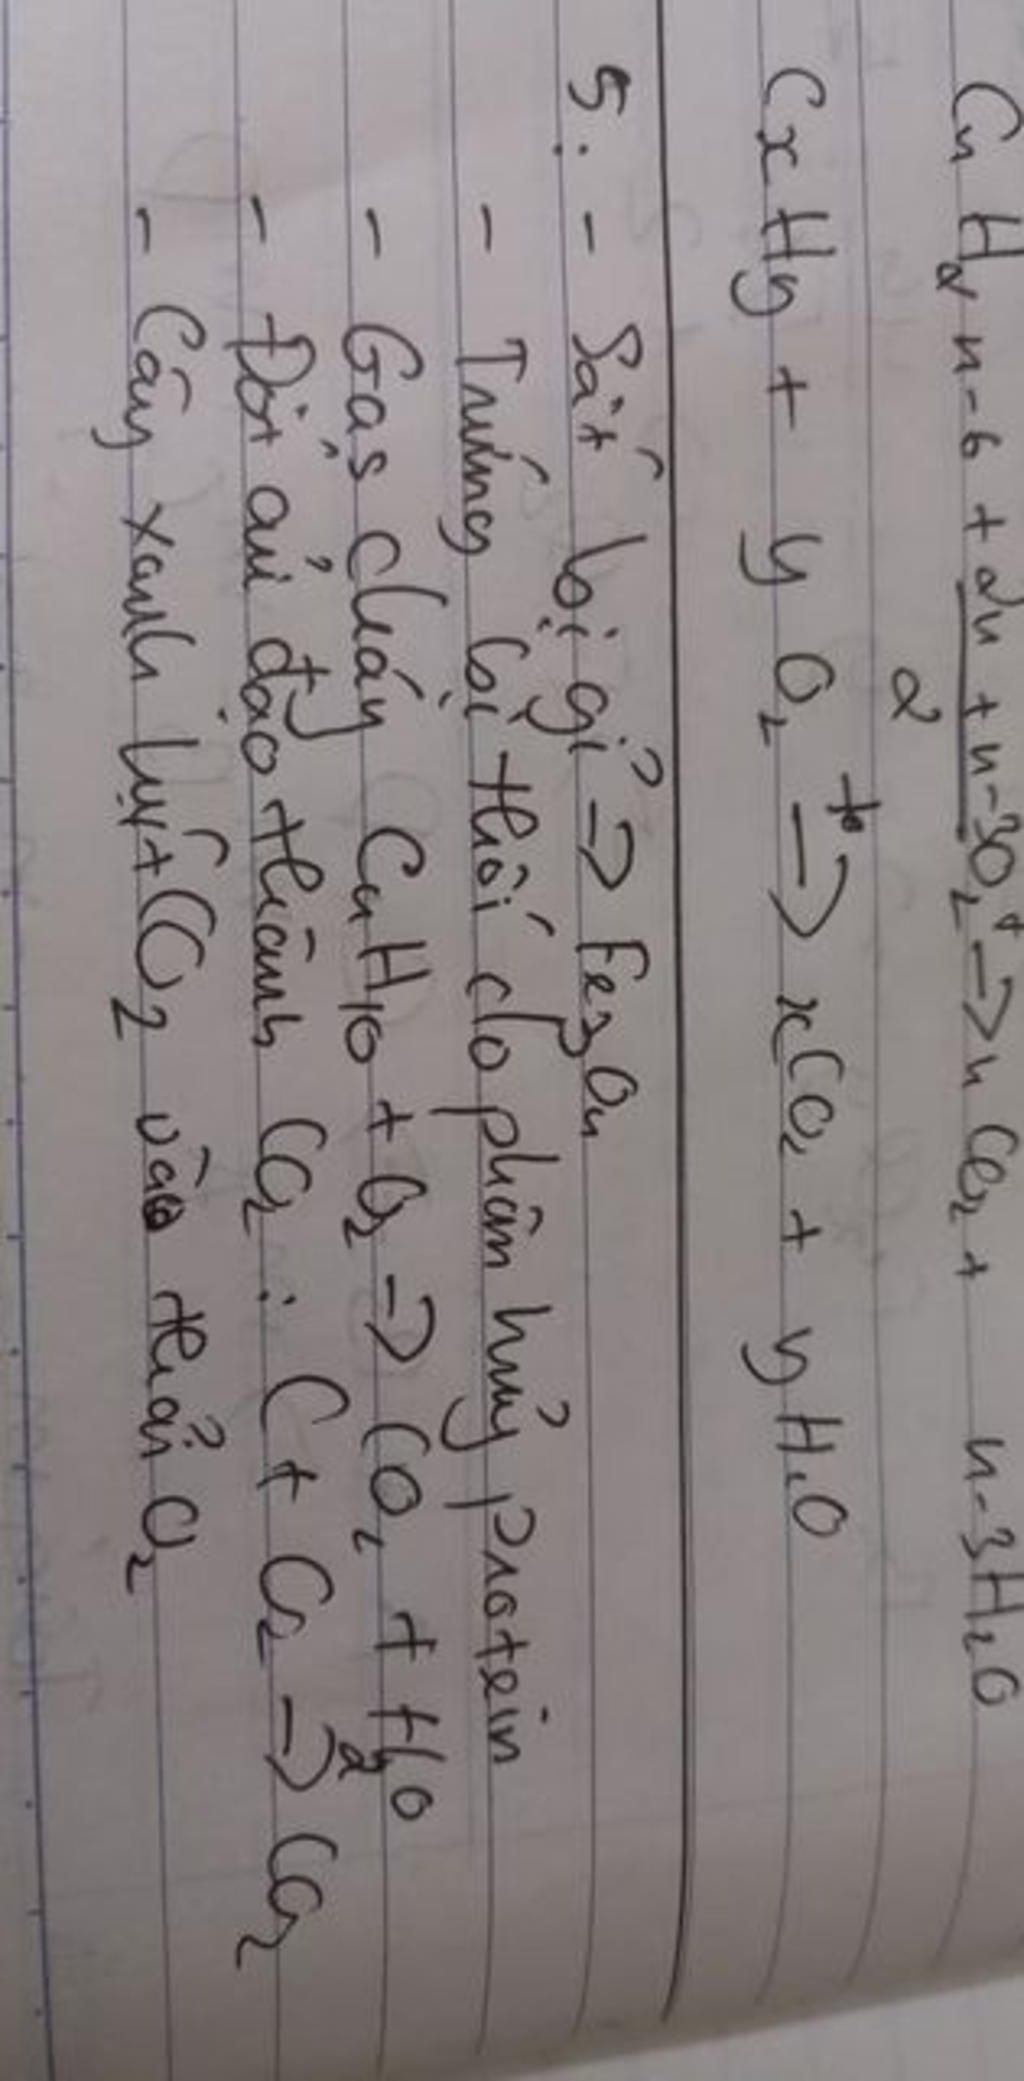 CnH2n-6 + 2n + n-3O2 t→ nCO2 + n-3H2O
2
CxHy + yO2 to→ xCO2 + yH2O
5: - Sắt bị gỉ → Fe3O4
- Trứng bị thối do phân huỷ protein
- Gas cháy C4H10 + O2 → CO2 + H2O
- Đốt củi đạo thành CO2 : C + O2 → CO2
- Cây xanh lấy CO2 và thải O2